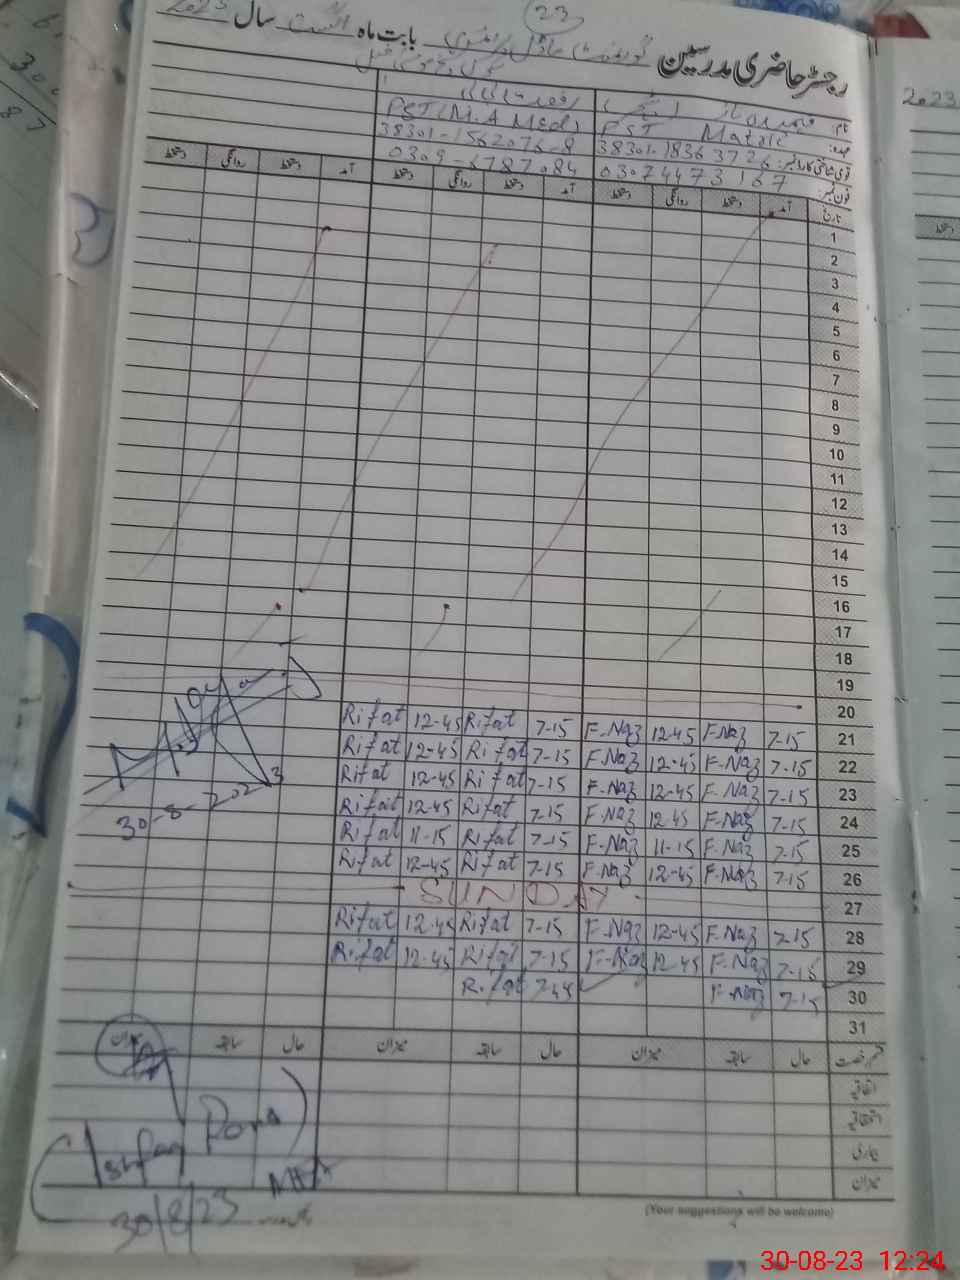 23
رجسٹر حاضری مدرسین گورنمنٹ ماڈل پرائمری بابت ماہ اگست سال 2023
نام:
عہدہ: PST Matric PST (M.A M.Ed)
قومی شناختی کارڈ نمبر: 38301-1836372 6 38301-1562076-8
فون نمبر: 03074473167 0309-6787084
تاریخ آمد دستخط روانگی دستخط آمد دستخط روانگی دستخط آمد دستخط روانگی دستخط
1
2
3
4
5
6
7
8
9
10
11
12
13
14
15
16
17
18
19
20
Rifat 12-45 Rifat 7-15 F-Naz 12-45 F-Naz 7-15 21
Rifat 12-45 Rifat 7-15 F-Naz 12-45 F-Naz 7-15 22
Rifat 12-45 Rifat 7-15 F-Naz 12-45 F-Naz 7-15 23
Rifat 12-45 Rifat 7-15 F-Naz 12-45 F-Naz 7-15 24
Rifat 11-15 Rifat 7-15 F-Naz 11-15 F-Naz 7-15 25
Rifat 12-45 Rifat 7-15 F-Naz 12-45 F-Naz 7-15 26
SUNDAY 27
Rifat 12-45 Rifat 7-15 F-Naz 12-45 F-Naz 7-15 28
Rifat 12-45 Rifat 7-15 F-Naz 12-45 F-Naz 7-15 29
Rifat 7-45 F-Naz 7-15 30
31
30-8-2023
حال سابقہ میزان حال سابقہ میزان حال سابقہ میزان
اتفاقیہ
استحقاقیہ
بیماری
میزان
Ishfaq Rana
30/8/23
(Your suggestions will be welcome)
2023
دستخط
30-08-23 12:24